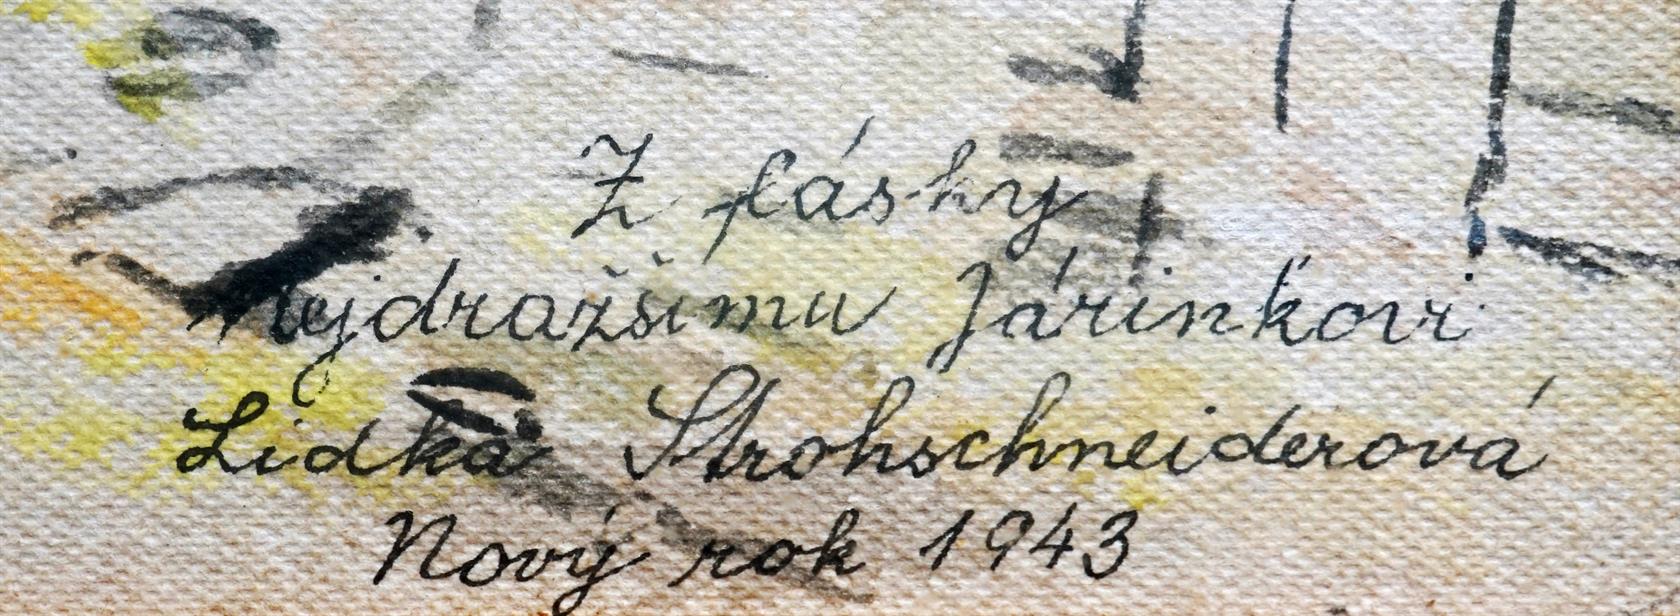 Z lásky
Nejdražšímu Járinkovi
Lidka Strohschneiderová
Nový rok 1943